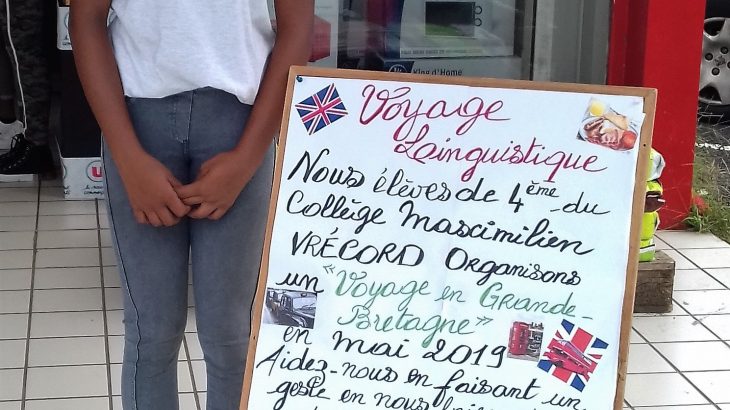 King d'Home
U
Voyage
Lainguistique
Nous élèves de 4ème du
Collège Mascimilien
VRÉCORD Organisons
un "Voyage en Grande-
Bretagne"
en mai 2019
Aidez-nous en faisant un
geste en nous